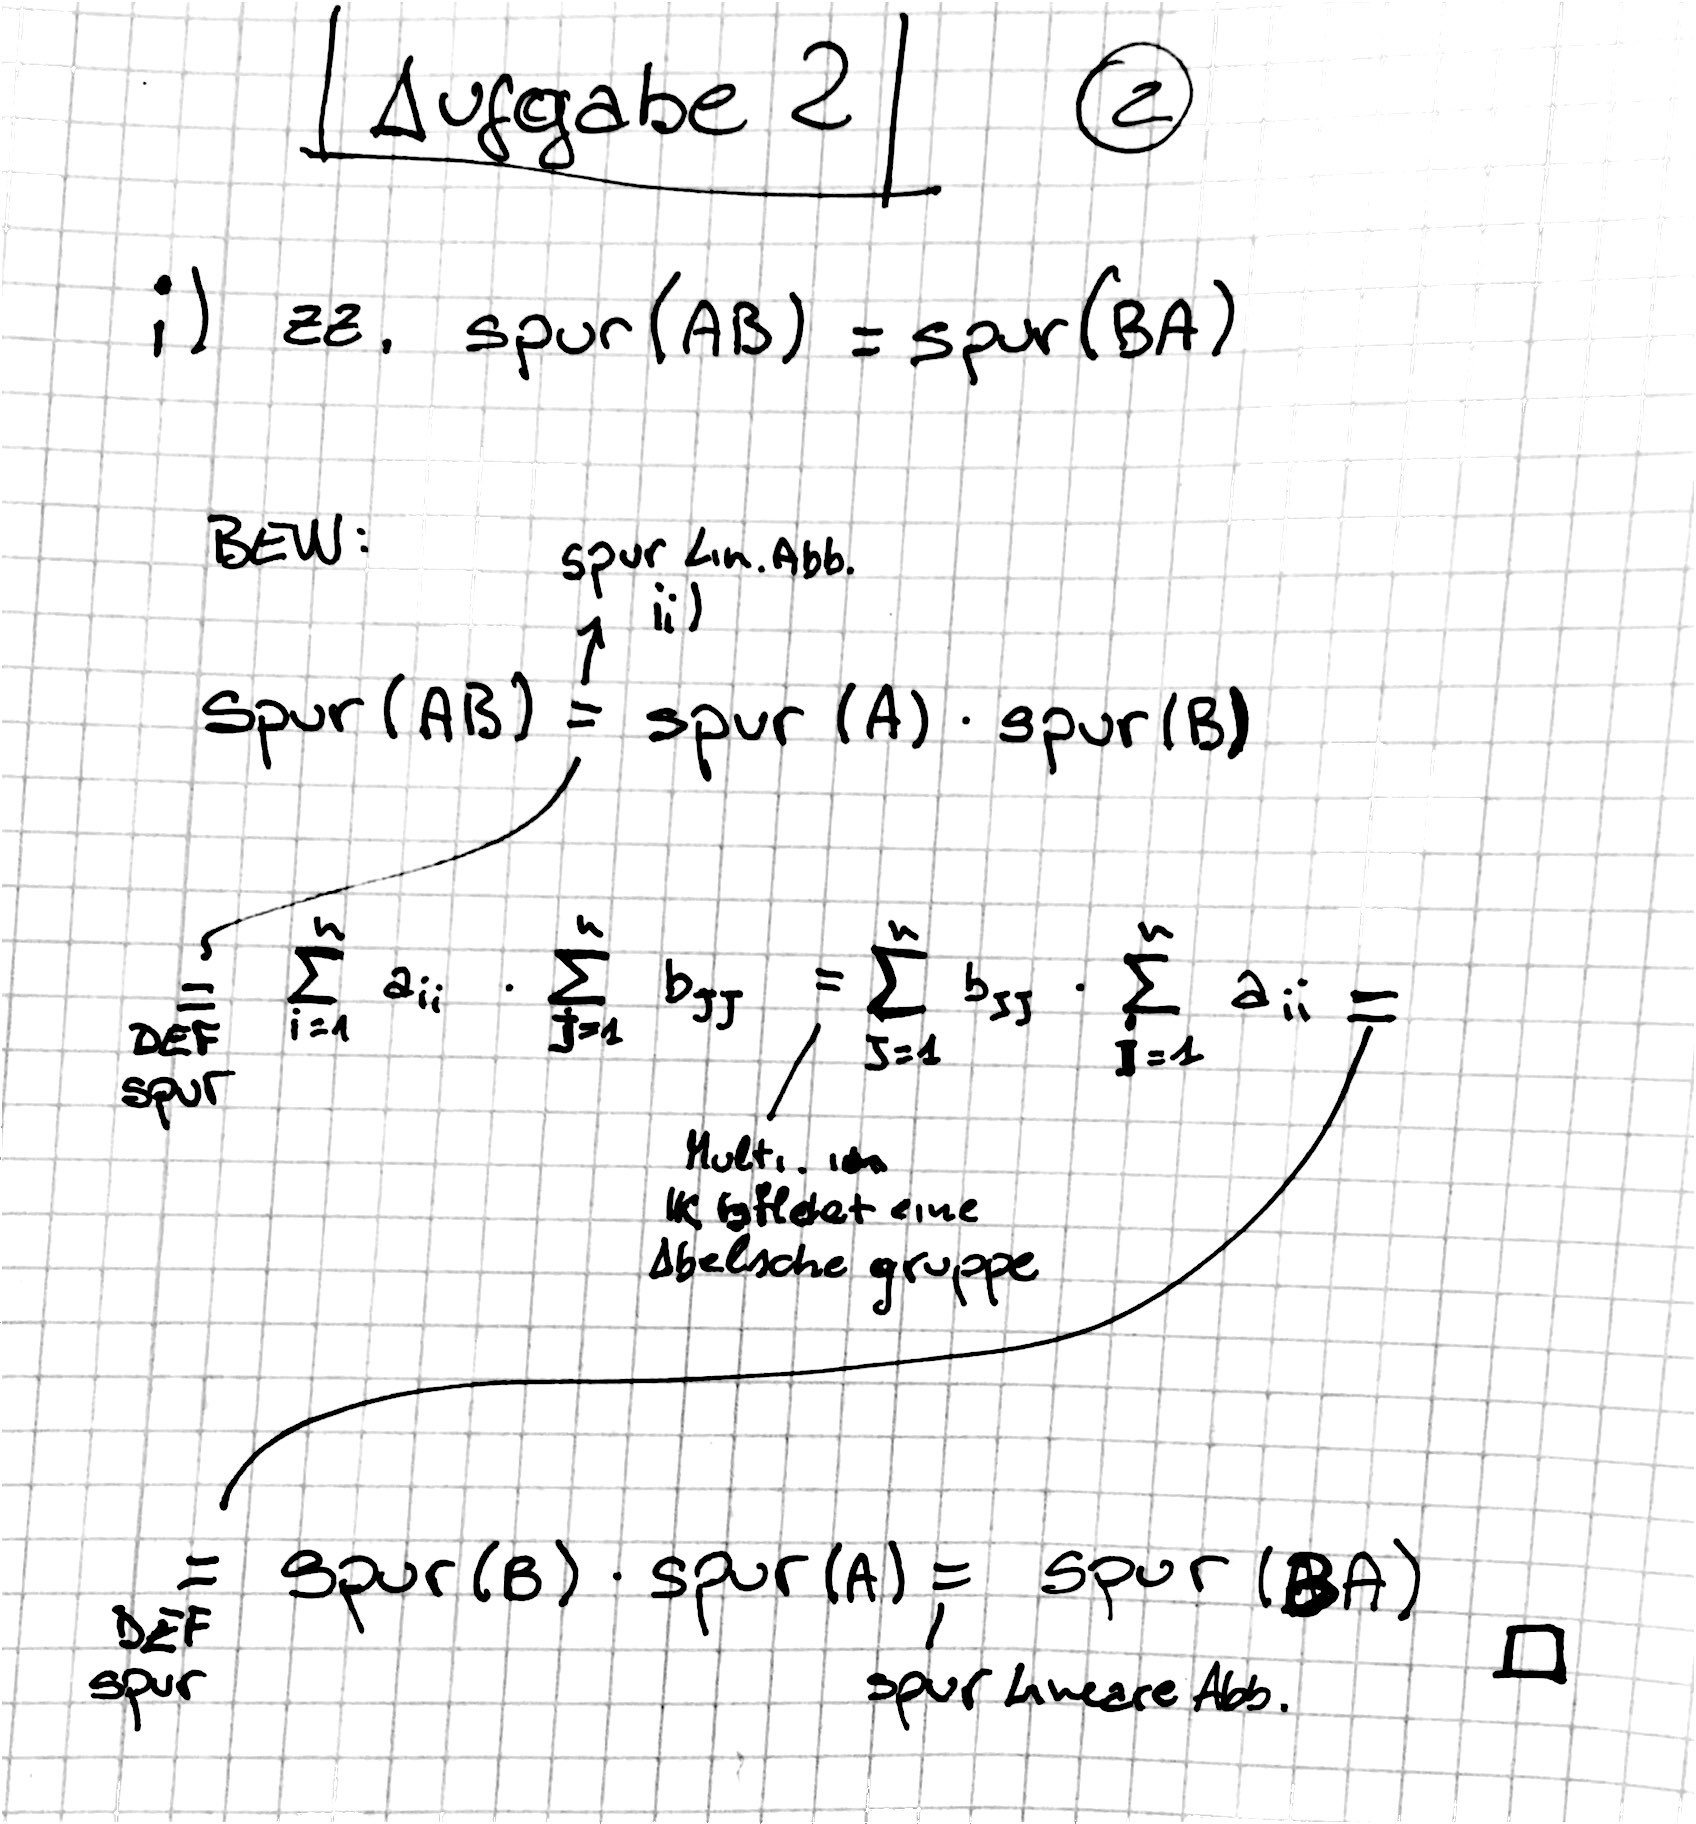 Aufgabe 2 2
i) zz. spur(AB) = spur(BA)
BEW:
spur Lin. Abb.
ii)
spur(AB) = spur(A) · spur(B)
= ∑ᵢ₌₁ⁿ aᵢᵢ · ∑_{J=1}^n b_{JJ} = ∑_{J=1}^n b_{JJ} · ∑_{I=1}^n aᵢᵢ =
DEF
spur
Multi. in
IK bildet eine
Abelsche gruppe
= spur(B) · spur(A) = spur(BA)
DEF
spur
spur Lineare Abb.
□